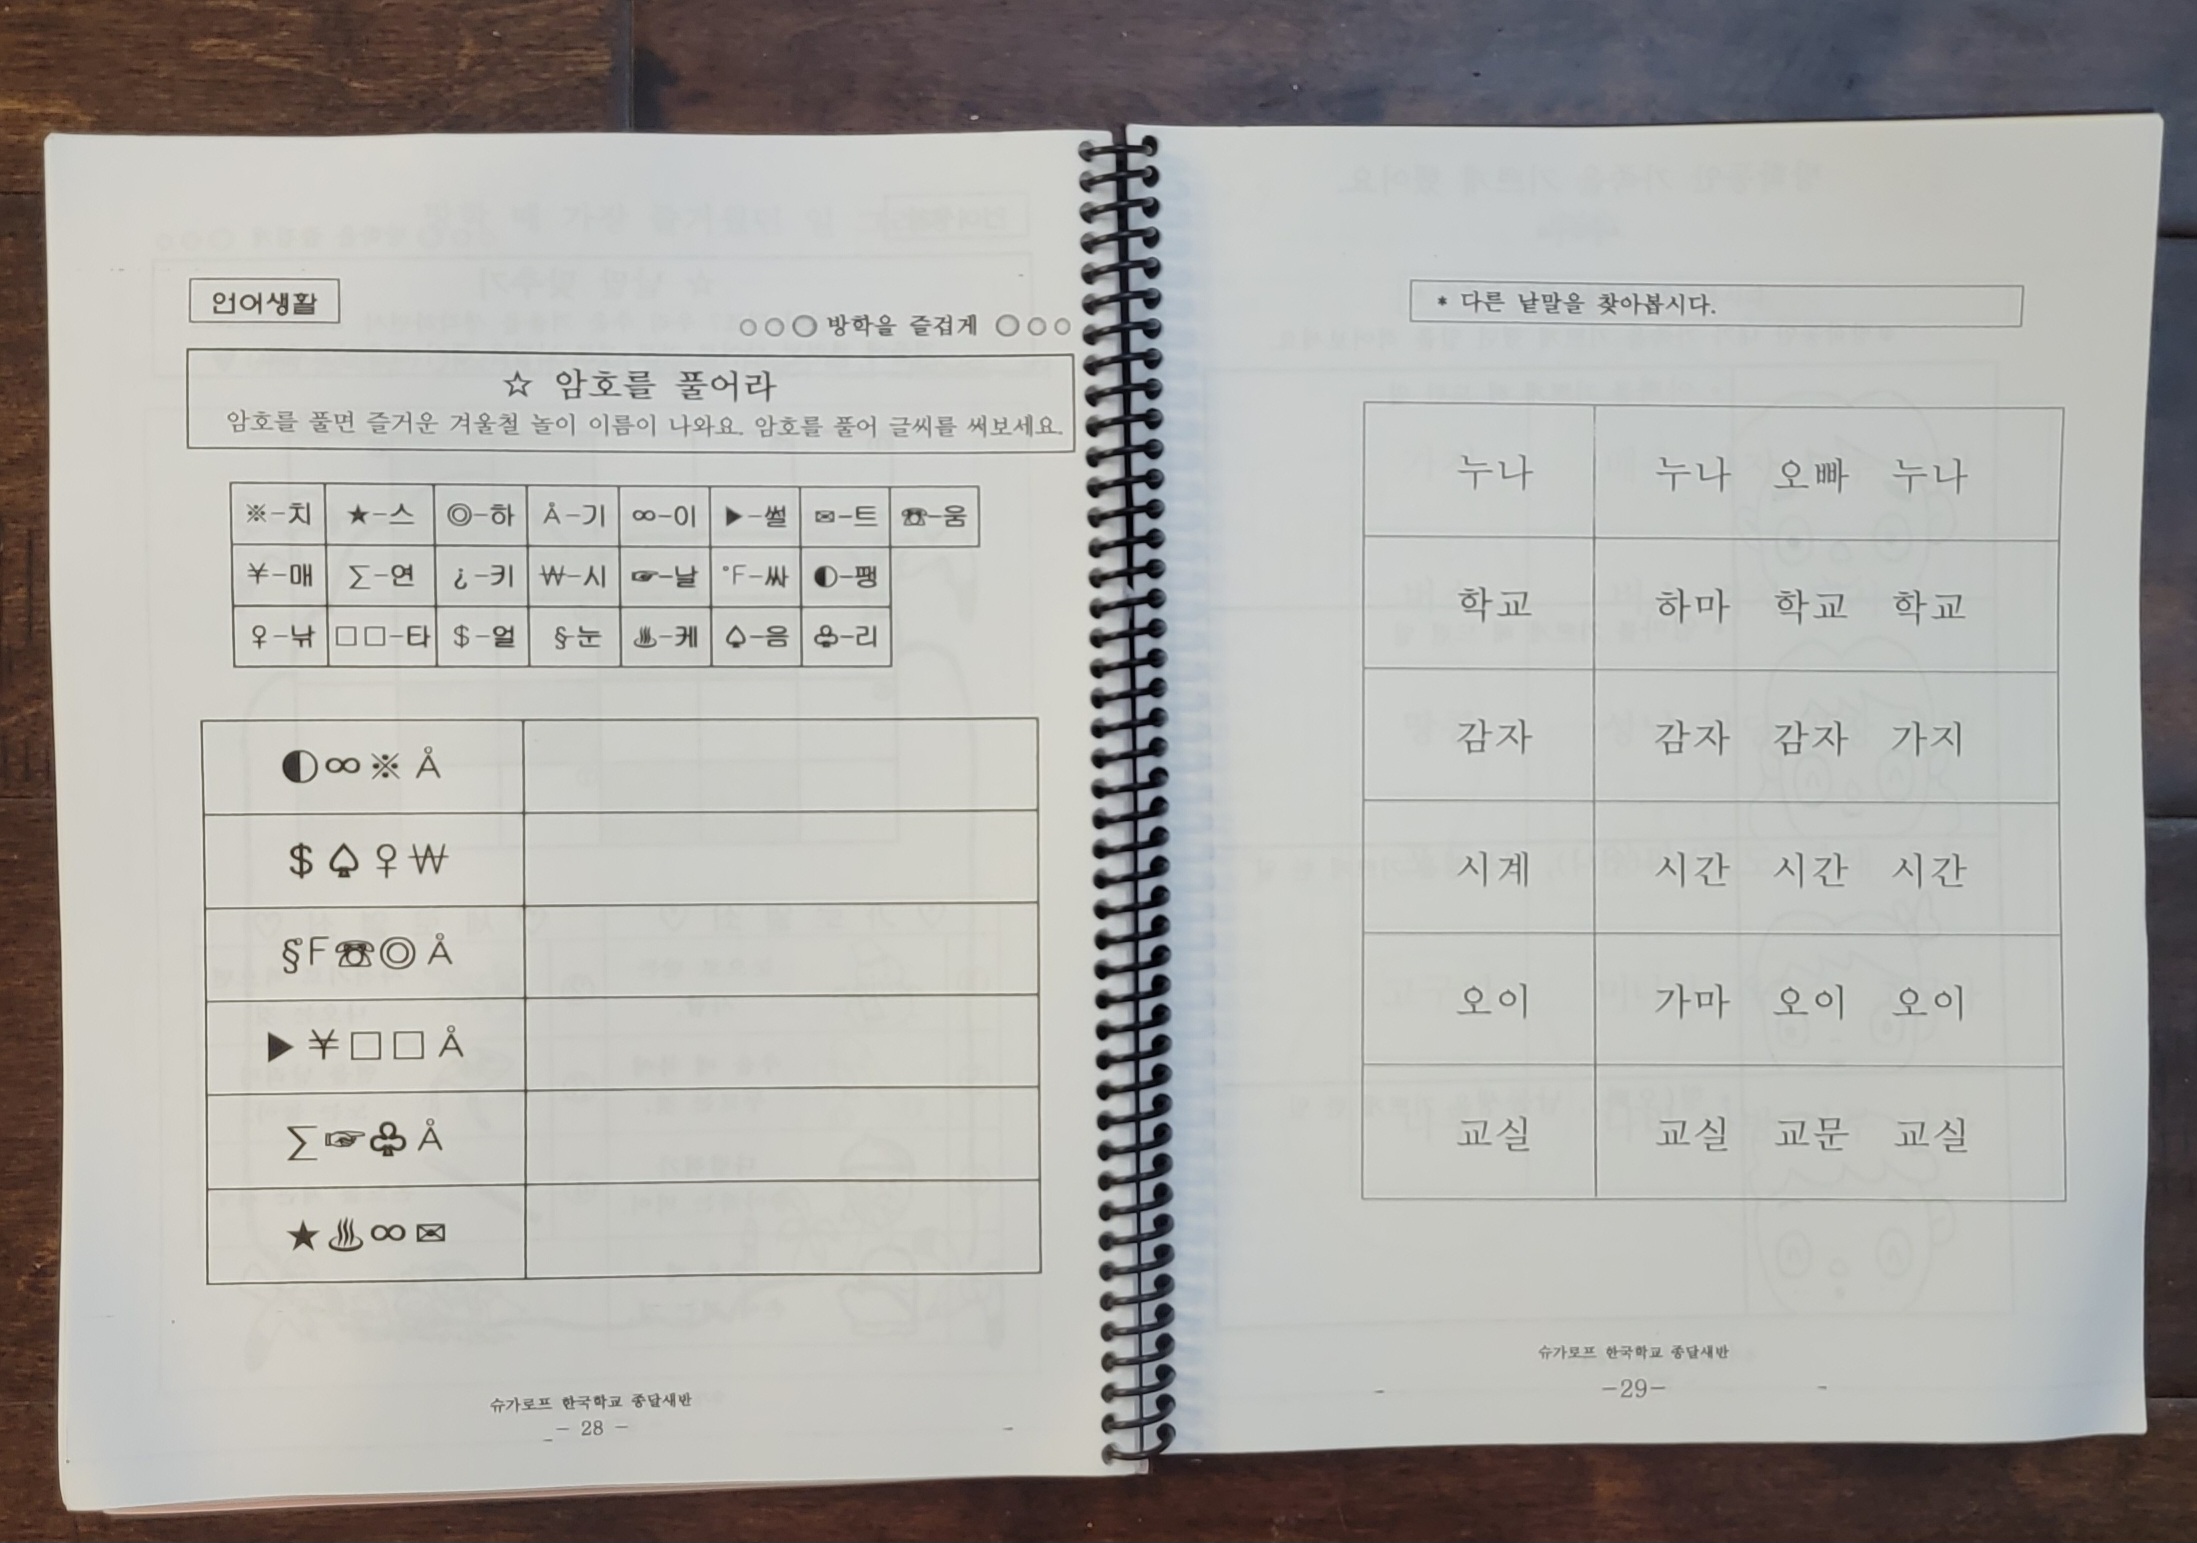 언어생활
○○○ 방학을 즐겁게 ○○○
☆ 암호를 풀어라
암호를 풀면 즐거운 겨울철 놀이 이름이 나와요. 암호를 풀어 글씨를 써보세요.
※-치 ★-스 ◎-하 Å-기 ∞-이 ▶-썰 ✉-트 ☏-움
¥-매 ∑-연 ¿-키 ₩-시 ☞-날 °F-싸 ◐-팽
♀-낚 □□-타 $-얼 §-눈 ♨-케 ♤-음 ♧-리
◐∞※Å
$♤♀₩
§F☏◎Å
▶¥□□Å
∑☞♧Å
★♨∞✉
슈가로프 한국학교 종달새반
- 28 -
* 다른 낱말을 찾아봅시다.
누나 누나 오빠 누나
학교 하마 학교 학교
감자 감자 감자 가지
시계 시간 시간 시간
오이 가마 오이 오이
교실 교실 교문 교실
슈가로프 한국학교 종달새반
-29-